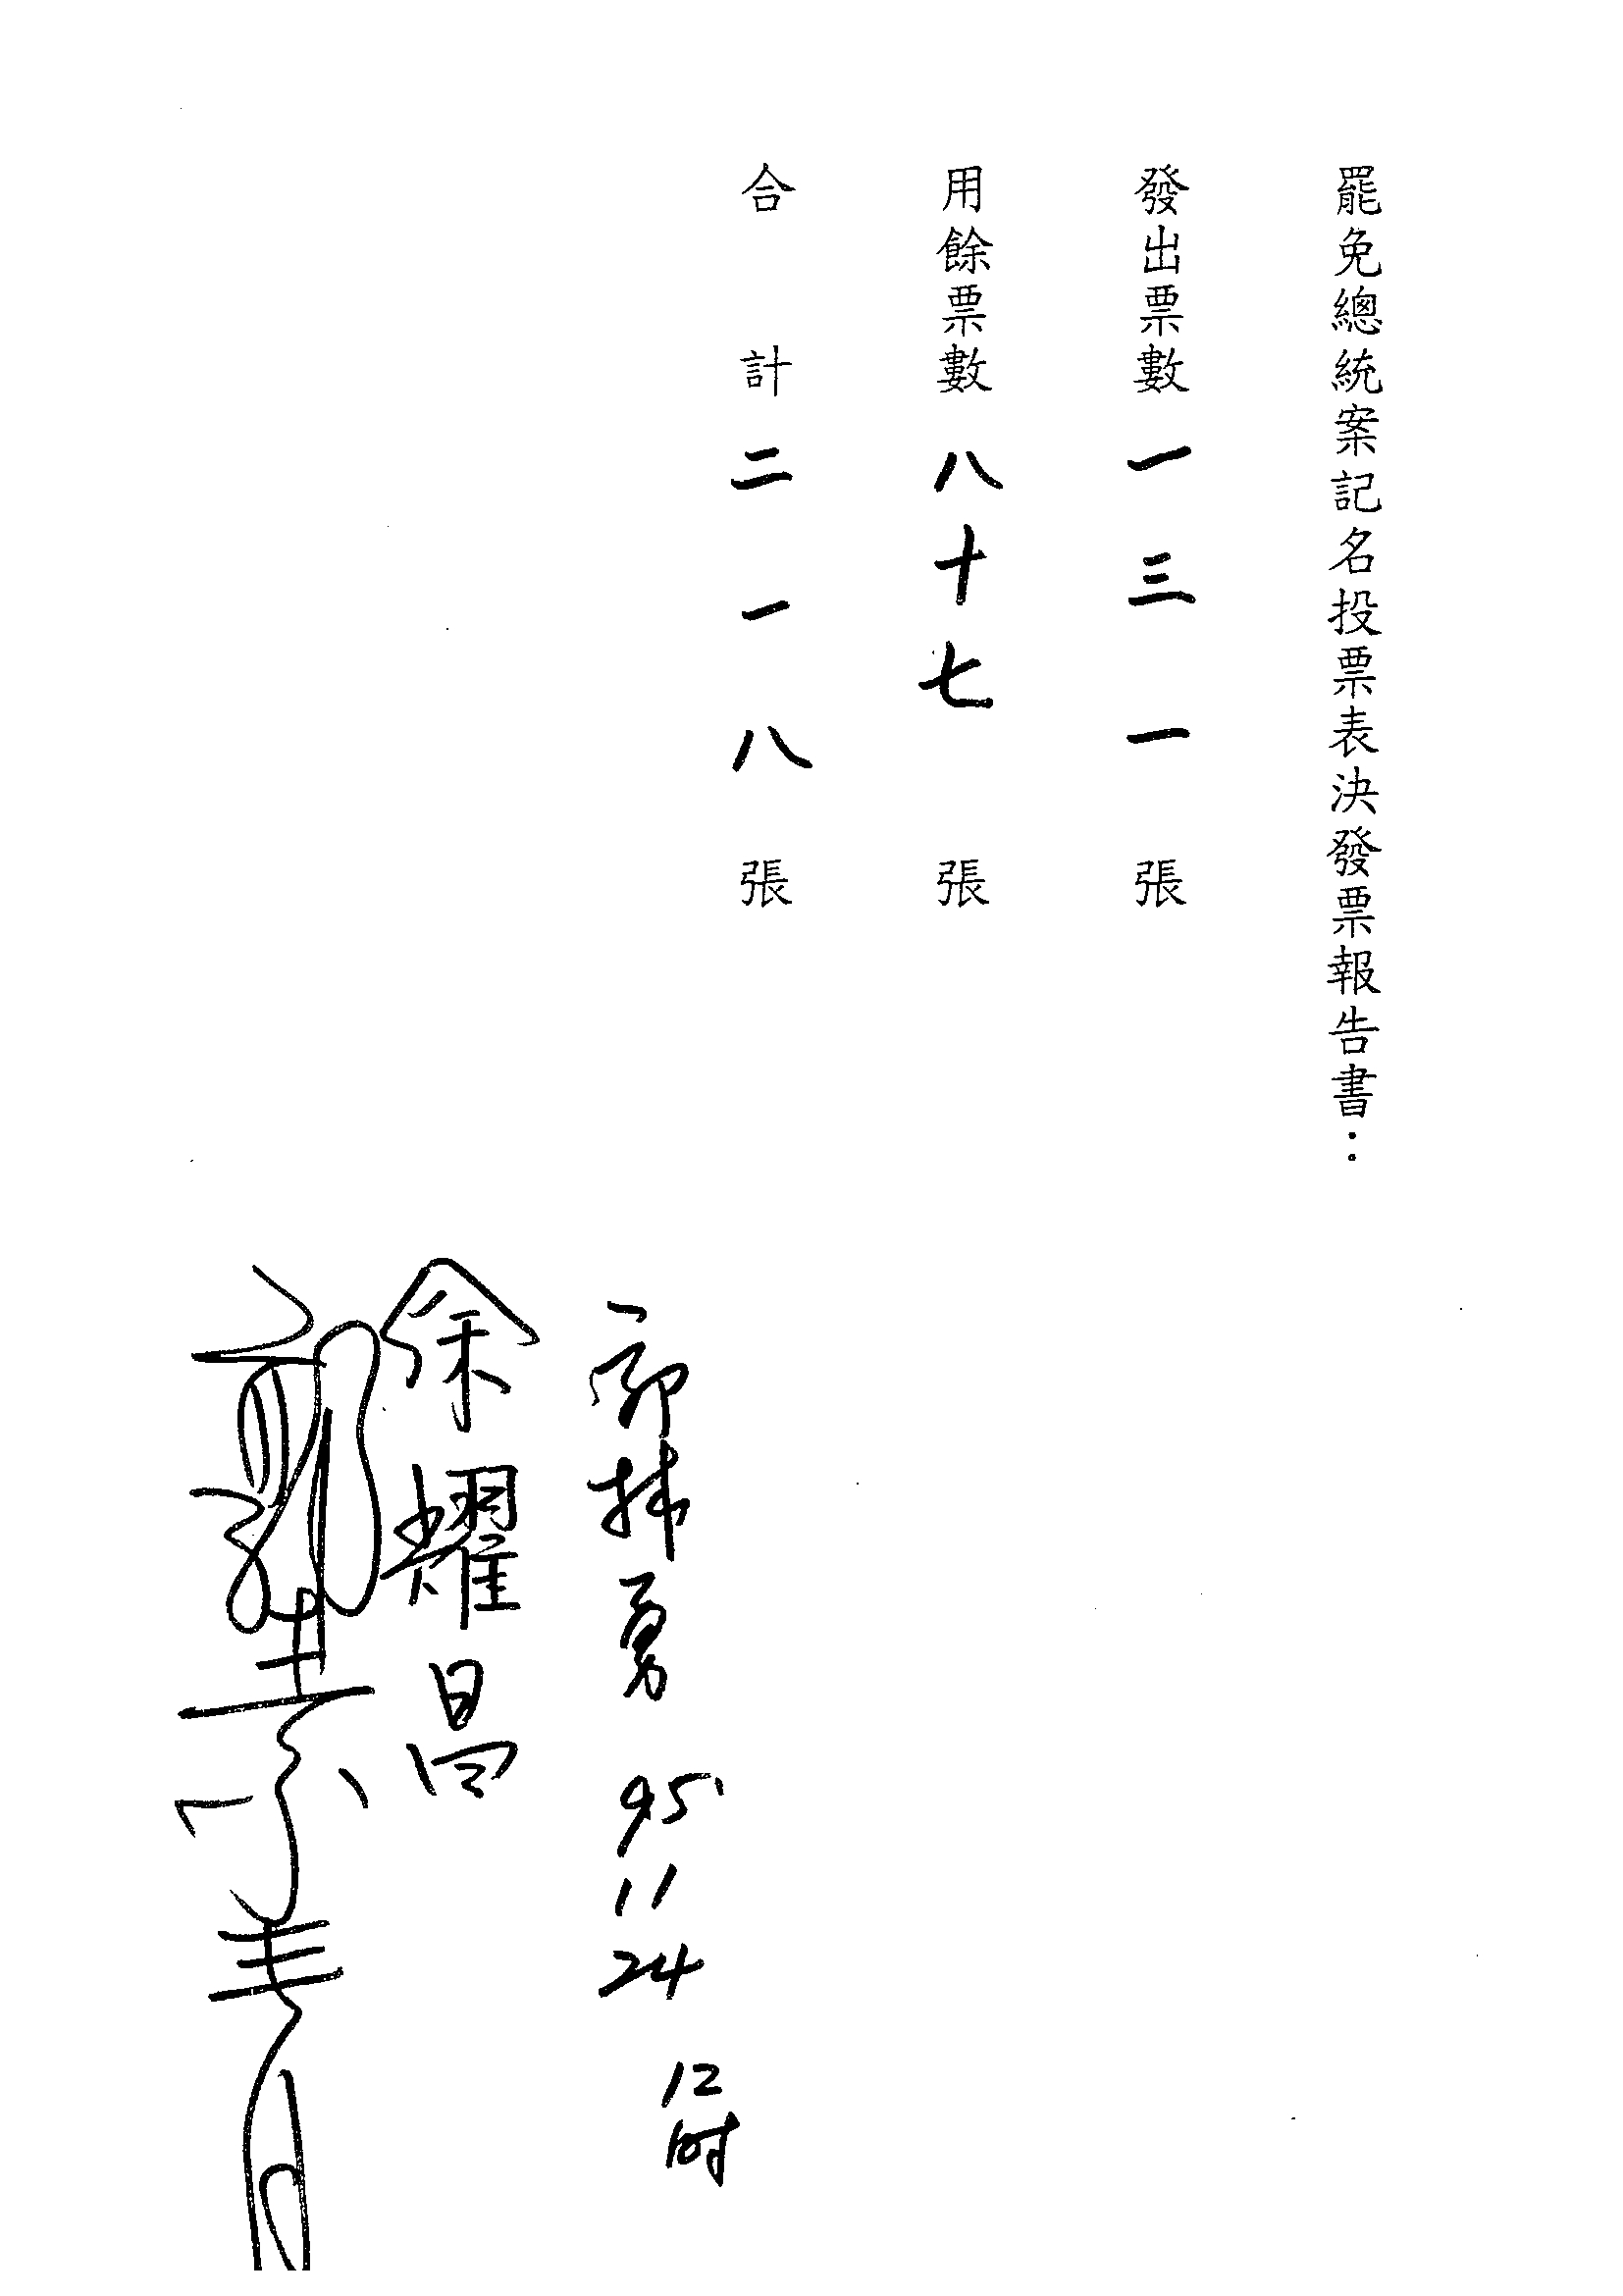 罷免總統案記名投票表決發票報告書：
發出票數一三一張
用餘票數八十七張
合計二一八張
95 11 24 12時
余耀昌